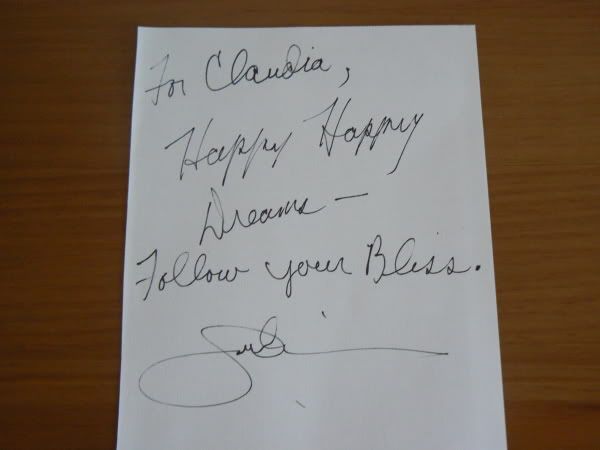 For Claudia,
Happy Happy
Dreams —
Follow your Bliss.
Juli